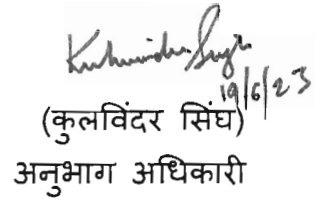 Kulwinder Singh
19/6/23
(कुलविंदर सिंघ)
अनुभाग अधिकारी